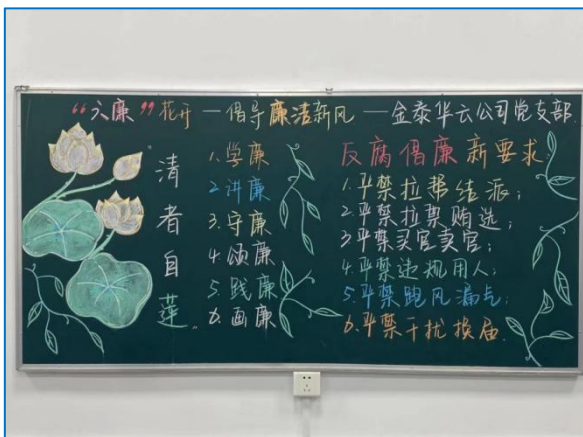 “六廉”花开—倡导廉洁新风—金泰华云公司党支部
“清者自莲”
1.学廉
2.讲廉
3.守廉
4.颂廉
5.践廉
6.画廉
反腐倡廉新要求
1.严禁拉帮结派;
2.严禁拉票贿选;
3.严禁买官卖官;
4.严禁违规用人;
5.严禁跑风漏气;
6.严禁干扰换届.